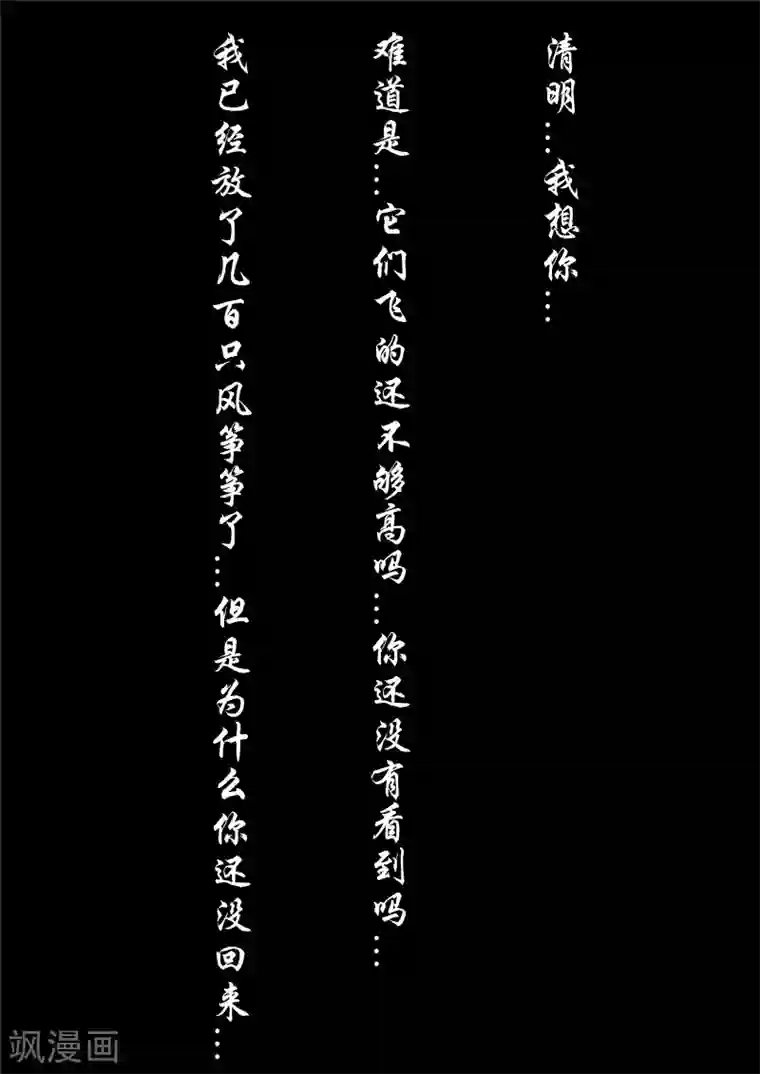 清明…我想你…
难道是…它们飞的还不够高吗…你还没有看到吗…
我已经放了几百只风筝筝了…但是为什么你还没回来…
飒漫画